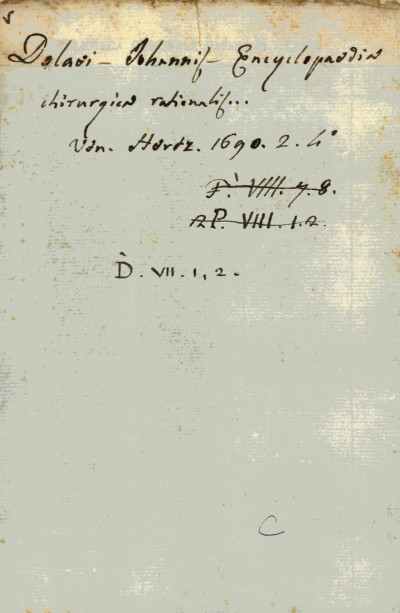 5
Dolaei - Johannis - Encyclopaedia
chirurgica rationalis...
Ven. Hertz. 1690. 2. 4°
F. VIII. 7. 8.
P. VIII. 1. 2.
D. VII. 1, 2.
C